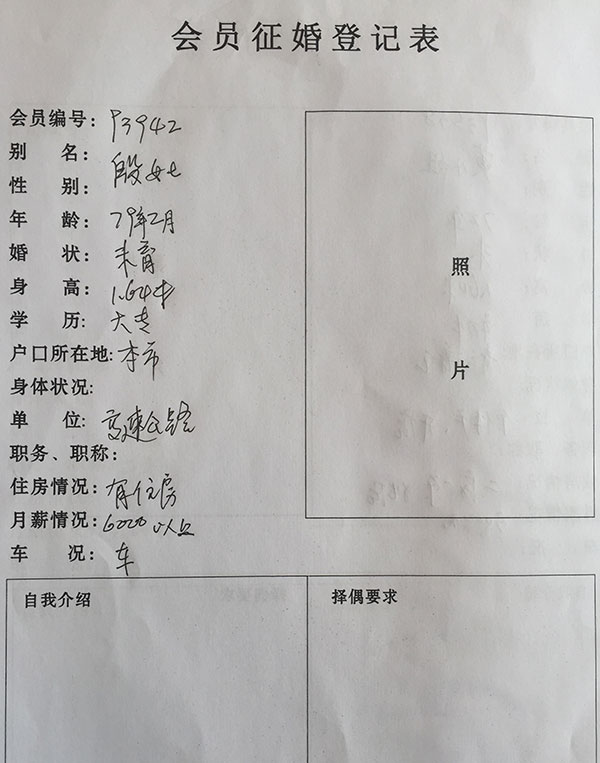 会员征婚登记表
会员编号: P3942
别 名: 段女士
性 别:
年 龄: 79年2月
婚 状: 未育
身 高: 1.64米
学 历: 大专
户口所在地: 本市
身体状况:
单 位: 高速公路
职务、职称:
住房情况: 有住房
月薪情况: 6000以上
车 况: 车
照
片
自我介绍
择偶要求